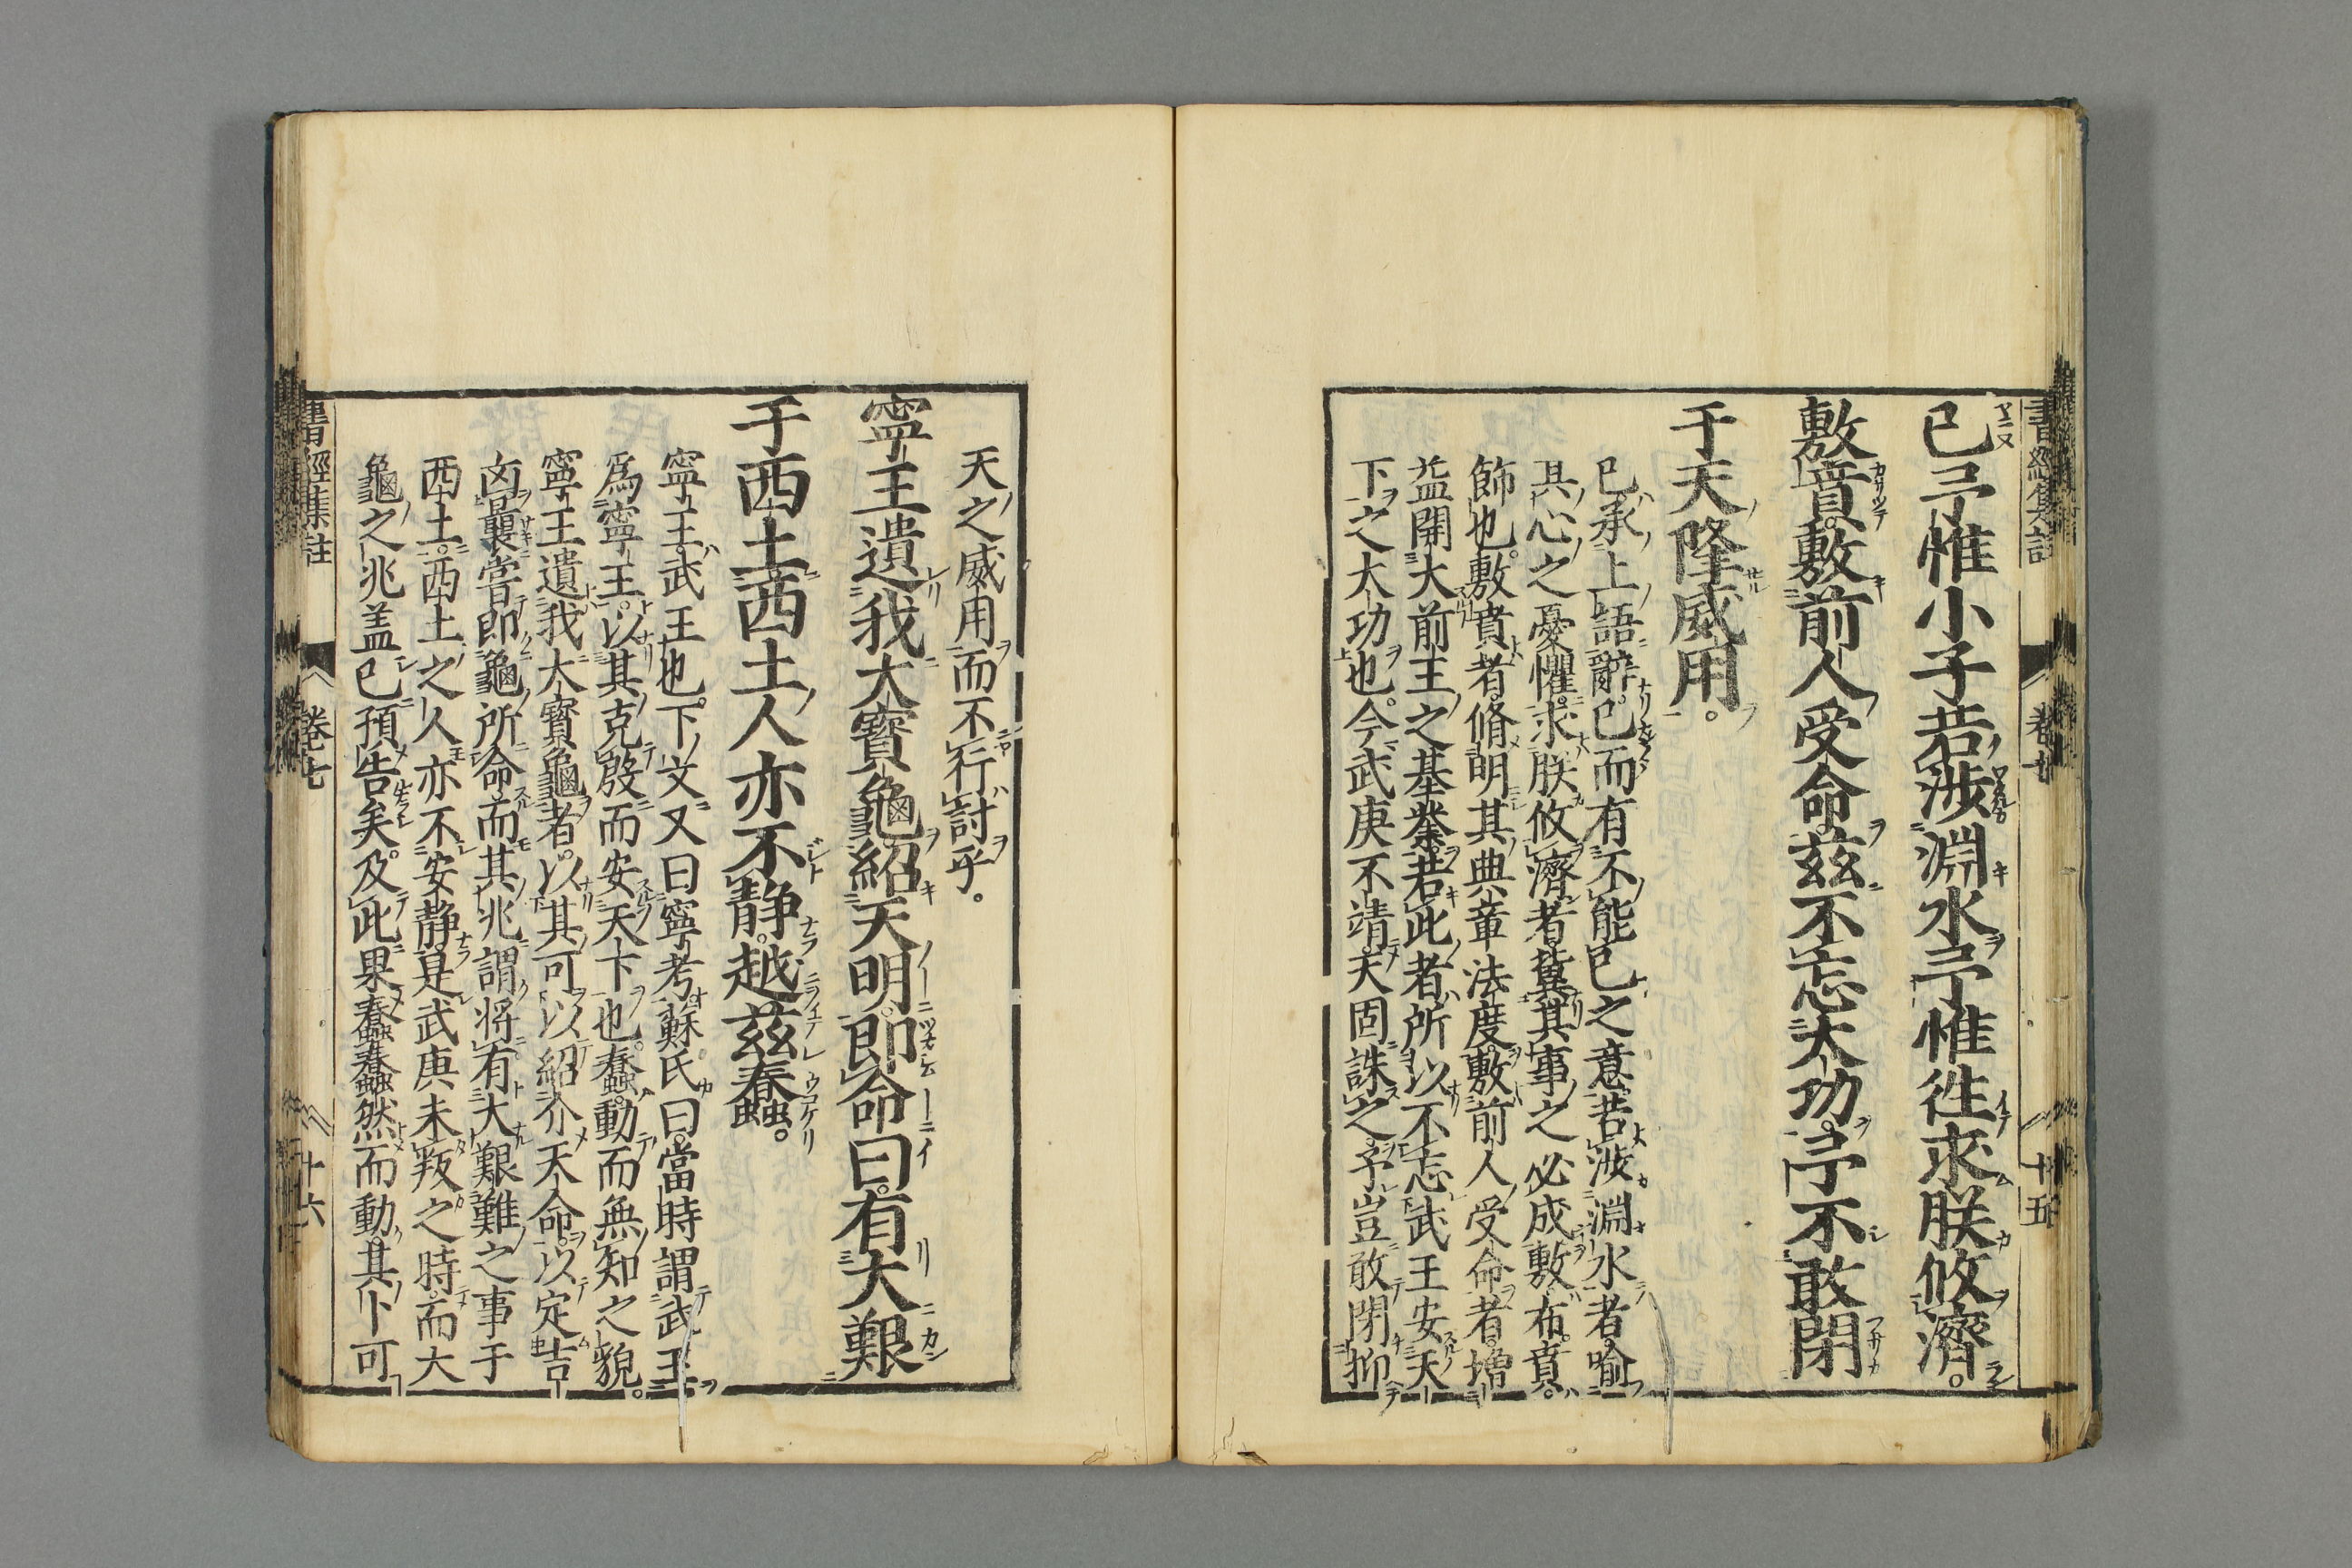 已予惟小子若渉淵水予惟徃求朕攸濟。
敷賁敷前人受命茲不忘大功予不敢閉
于天降威用。
已承上語辭已而有不能已之意若渉淵水者喻
其心之憂懼求朕攸濟者冀其事之必成敷布賁
飾也敷賁者脩明其典章法度敷前人受命者増
益開大前王之基業若此者所以不忘武王安天
下之大功也今武庚不靖天固誅之予豈敢閉抑
天之威用而不行討乎。
寧王遺我大寶龜紹天明即命曰有大艱
于西土西土人亦不静越茲蠢。
寧王武王也下文又曰寧考蘇氏曰當時謂武王
爲寧王以其克殷而安天下也蠢動而無知之貌。
寧王遺我大寶龜者以其可以紹介天命以定吉
凶曩嘗即龜所命而其兆謂将有大艱難之事于
西土西土之人亦不安静是武庚未叛之時而大
龜之兆盖已預告矣及此果蠢蠢然而動其卜可
書經集註 卷七 十六